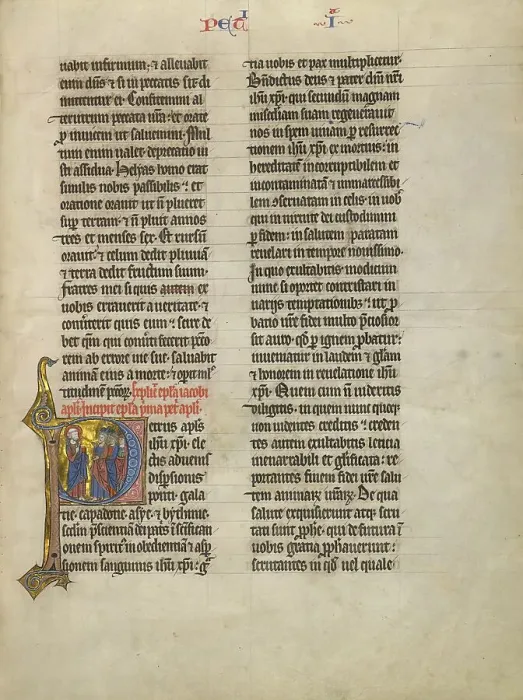 PET I
I
uabit infirmum; ⁊ alleuabit
eum dn̄s ⁊ si in peccatis sit di
mittentur ei. Confitemini al
terutrum peccata ur̄a: et orate
ꝑ inuicem ut saluemini. Mul
tum enim ualet deprecatio iu
sti assidua. Helyas homo erat
similis nobis passibilis: et
oratione orauit ut n̄ plueret
suꝑ terram: ⁊ n̄ pluit annos
tres et menses sex. Et rursū
orauit: ⁊ celum dedit pluuiā
⁊ terra dedit fructum suum.
fratres mei si quis autem ex
uobis errauerit a ueritate: ⁊
conūterit quis eum: scire de
bet qm̄ qui conūti fecerit pctō
rem ab errore uie sue. saluabit
animā eius a morte: ⁊ opit ml̄
titudinem pctōꝝ. Explic̄ epl̄a iacobi
apl̄i. Incipit epl̄a p̄ma petri apl̄i.
etrus apl̄s
ihū xp̄i. ele
ctis aduenis
dispsionis
ponti. gala
tie. capadocie. asye. ⁊ bythinie.
scdm̄ p̄scientiā dei patris ī sc̄ificati
onem spirit᷒ in obedientiā ⁊ asp̄
sionem sanguinis ihū xp̄i: gr̄
tia uobis et pax multiplicetur.
Bn̄dictus deus ⁊ pater dn̄i nr̄i
ihū xp̄i. qui secundū magnam
misc̄diam suam regenerauit
nos in spem uiuam ꝑ resurrec
tionem ihū xp̄i ex mortuis: in
hereditatē incorruptibilem et
incontaminatā ⁊ inmarcessibi
lem ꝯseruatam in celis. in uob̄
qui in uirtute dei custodimini
ꝑ fidem: in salutem paratam
reuelari in tempore nouissimo.
In quo exultabitis modicum
nunc si oportet contristari in
uarijs temptationibꝫ: ut ꝑ
batio ur̄e fidei multo p̄ciosior
sit auro. qd̄ ꝑ ignem ꝑbatur:
inueniatur in laudem ⁊ gl̄am
⁊ honorem in reuelatione ihū
xp̄i. Quem cum n̄ uideritis
diligitis. in quem nunc quoqꝫ
non uidentes creditis: creden
tes autem exultabitis leticia
inenarrabili et gl̄ificata: re
portantes finem fidei ur̄e salu
tem animaꝝ ur̄aꝝ. De qua
salute exquisierunt atqꝫ scru
tati sunt ꝓphe. qui de futura ī
uobis gratia ꝓphauerunt:
scrutantes in qd̄ uel quale